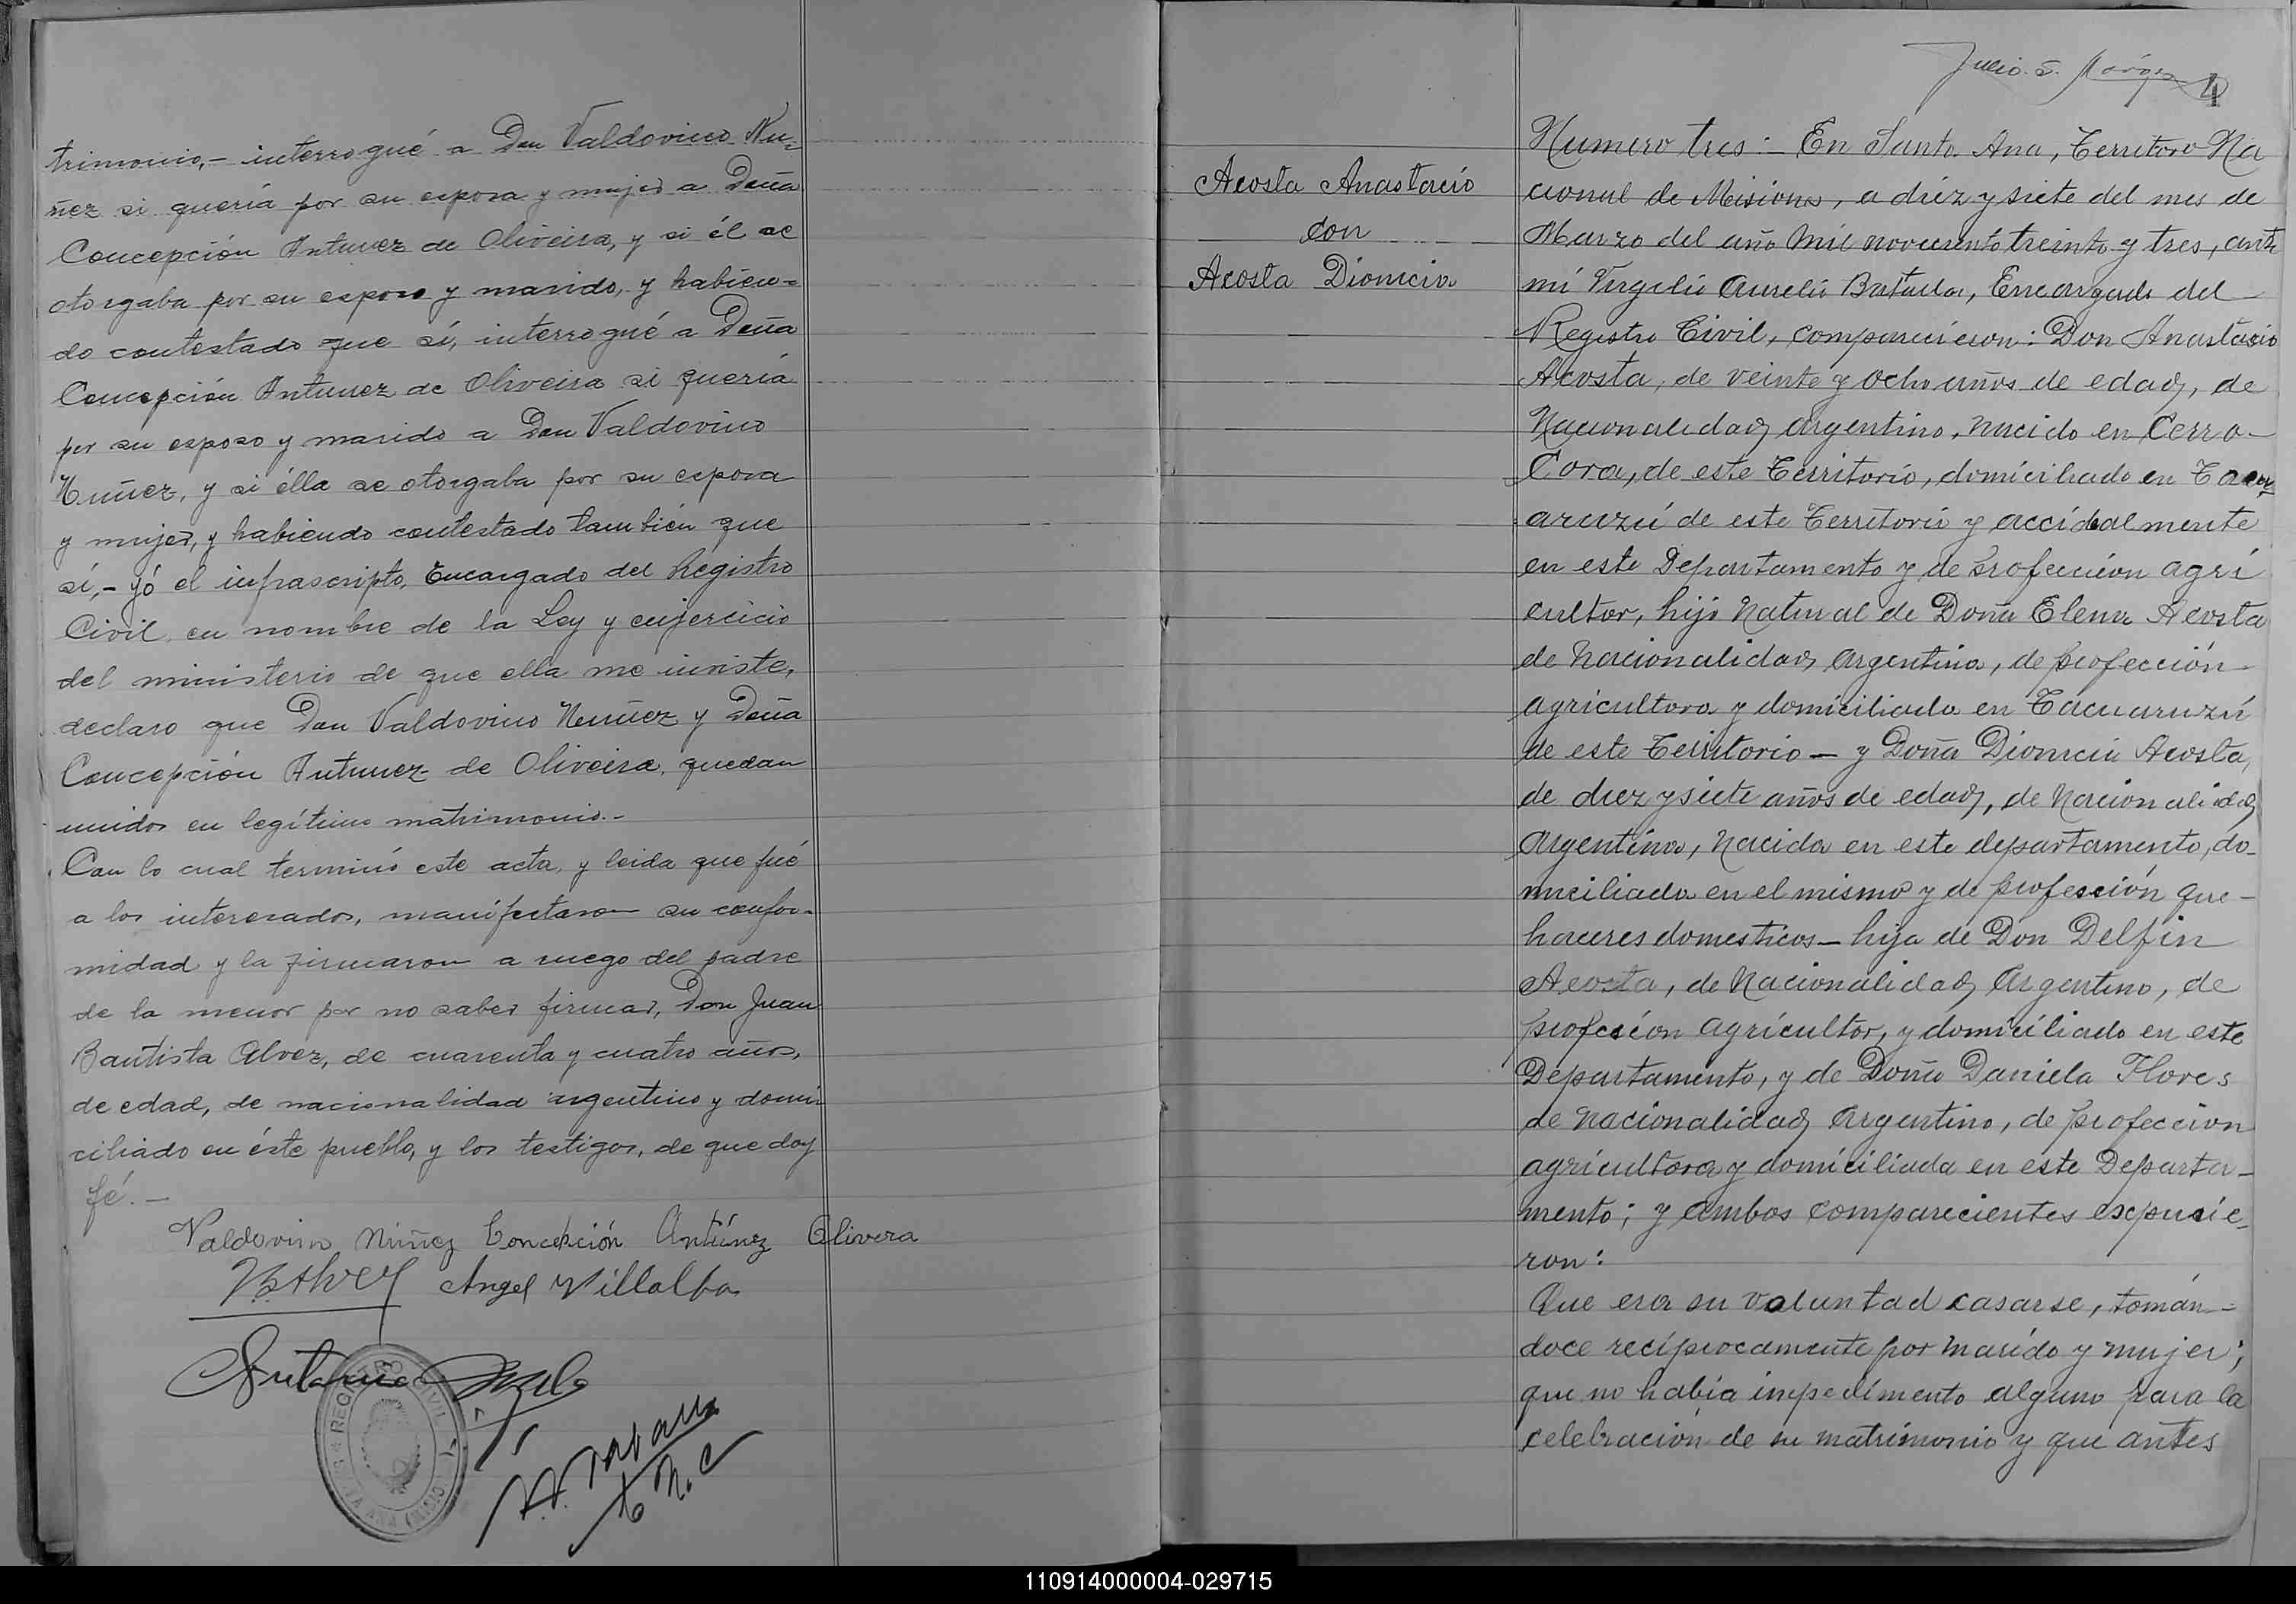 trimonio,- interrogué a Don Valdovino Nu=
ñez si quería por su esposa y mujer a Doña
Concepción Antunez de Oliveira, y si él se
otorgaba por su esposo y marido, y habien=
do contestado que sí, interrogué a Doña
Concepción Antunez de Oliveira si quería
por su esposo y marido a Don Valdovino
Nuñez, y si élla se otorgaba por su esposa
y mujer, y habiendo contestado también que
sí,- yó el infrascripto, Encargado del Registro
Civil, en nombre de la Ley y enjercicio
del ministerio de que ella me inviste,
declaro que Don Valdovino Nuñez y Doña
Concepción Antunez de Oliveira, quedan
unidos en legítimo matrimonio.-
Con lo cual terminó este acta, y leida que fué
a los interesados, manifestaron su confor-
midad y la firmaron a ruego del padre
de la menor por no saber firmar, Don Juan
Bautista Alvez, de cuarenta y cuatro años,
de edad, de nacionalidad argentino y domi
ciliado en éste pueblo, y los testigos, de que doy
fé.-
Valdovino Núñez Concepción Antúnez Olivera
Angel Villalba
REGISTRO CIVIL
Acosta Anastacio
con
Acosta Dionicia
4
Numero tres:- En Santa Ana, Territoro Na
cional de Misiones, a diez y siete del mes de
Marzo del año mil novecientos treinta y tres, ante
mí Virgilio Aurelio, Encargado del
Registro Civil, comparecieron: Don Anastacio
Acosta, de veinte y ocho años de edad, de
Nacionalidad argentino, nacido en Cerro-
Cora, de este Territorio, domiciliado en Tacu
aruzú de este Territorio y accidalmente
en este Departamento y de profeccion agri
cultor, hijo Natural de Doña Elena Acosta
de nacionalidad argentina, de profección
agricultora y domiciliada en Tacuaruzú
de este Territorio - y Doña Dionicia Acosta,
de diez y siete años de edad, de Nacionalidad
Argentina, nacida en este departamento, do-
miciliada en el mismo y de profesción que-
haceres domesticos - hija de Don Delfin
Acosta, de Nacionalidad Argentino, de
profesion agricultor, y domiciliado en este
Departamento, y de Doña Daniela Flores
de nacionalidad Argentino, de profeccion
agricultora y domiciliada en este Departa-
mento; y ambos comparecientes expusie-
ron:
Que era su voluntad casarse, tomán=
doce recíprocamente por marido y mujer;
que no había impedimento alguno para la
celebración de su matrimonio y que antes
110914000004-029715